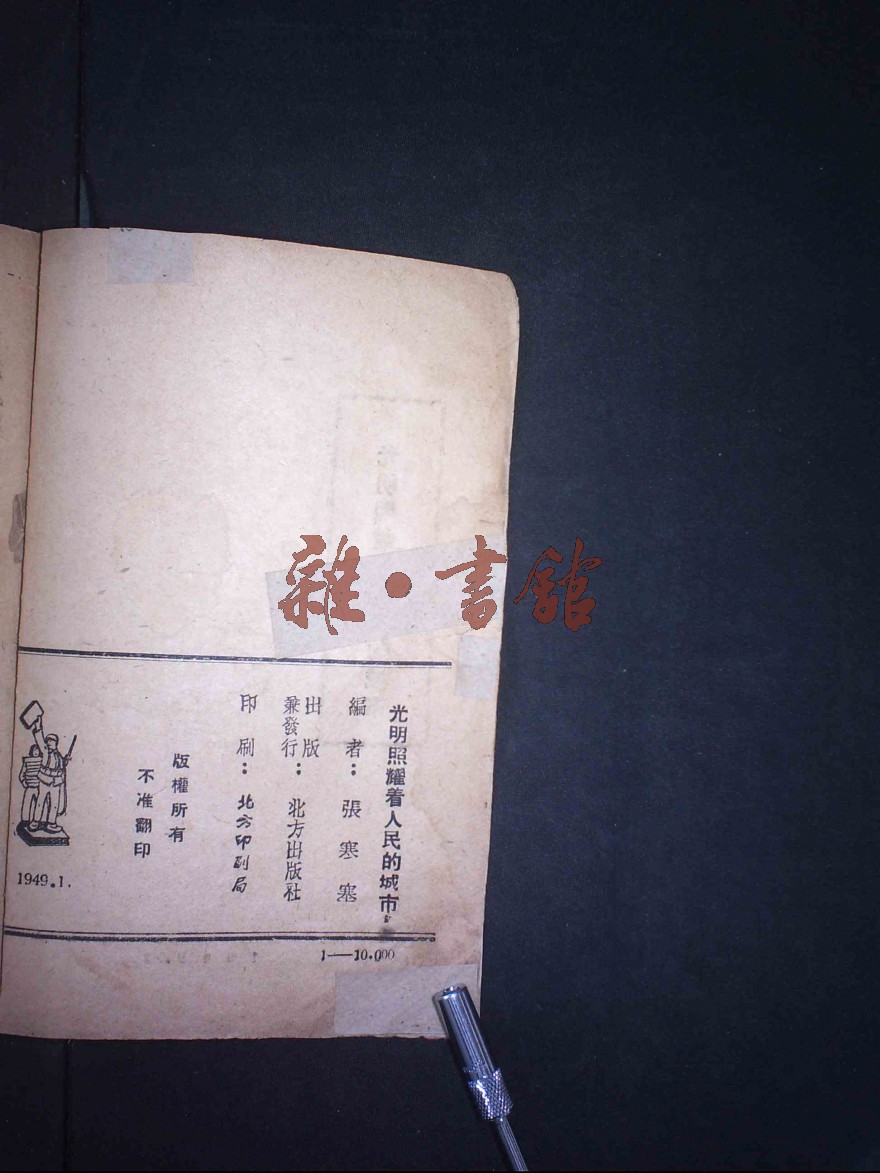 光明照耀着人民的城市
編者：張寒寒
出版
兼發行：北方出版社
印刷：北方印刷局
版權所有
不准翻印
1949.1.
1—10.000
雜·書館